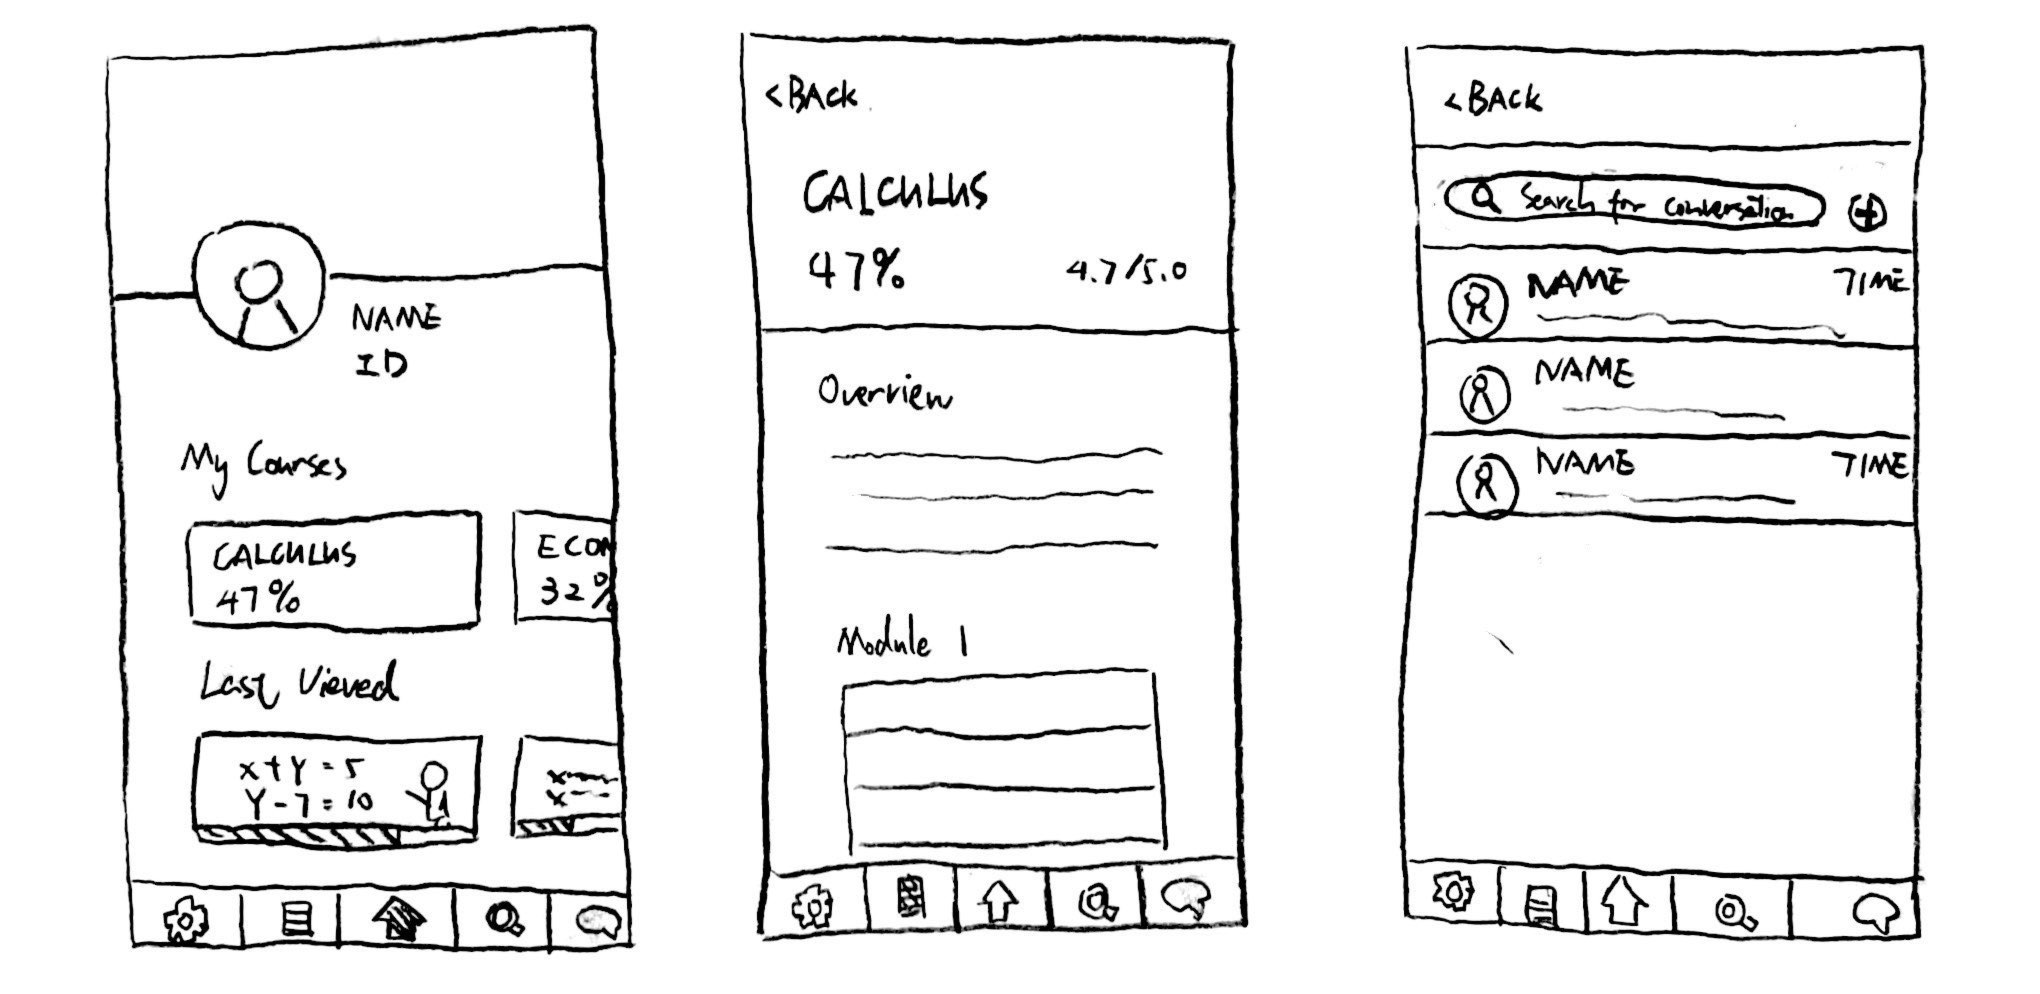 NAME
ID
My Courses
CALCULUS
47%
ECON
32%
Last Vieved
x+y=5
Y-7=10
<BACK
CALCULUS
47%
4.7/5.0
Overview
Module 1
<BACK
Search for conversation
NAME
TIME
NAME
NAME
TIME